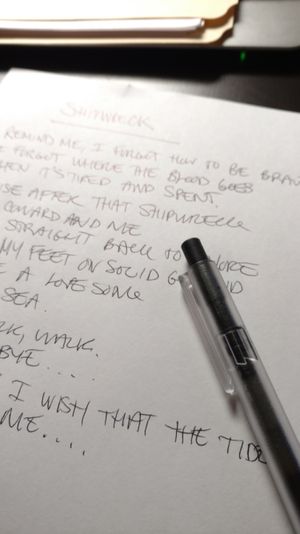 SHIPWRECK
REMIND ME, I FORGOT HOW TO BE BRAV
FORGOT WHERE THE BLOOD GOES
WHEN IT'S TIRED AND SPENT.
USE AFTER THAT SHIPWRECK
COWARD AND ME
STRAIGHT BACK TO SHORE
MY FEET ON SOLID G ND
A LONESOME
SEA.
LK, WALK.
BYE....
I WISH THAT THE TIDE
ME....